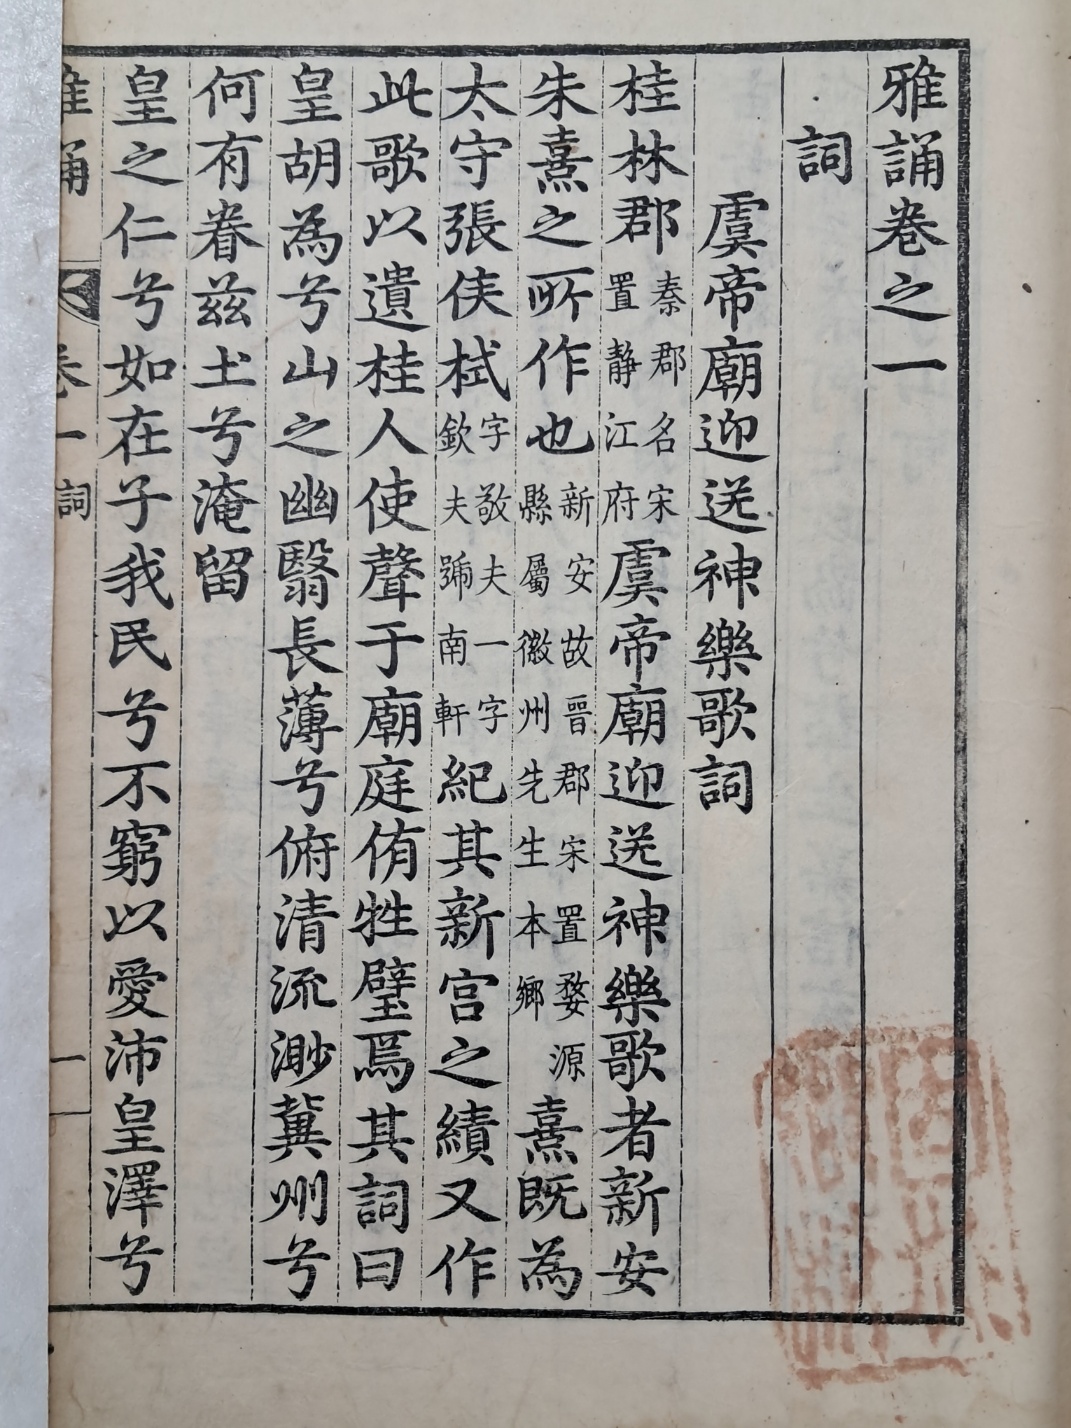 雅誦卷之一
詞
虞帝廟迎送神樂歌詞
桂林郡秦郡名宋置靜江府虞帝廟迎送神樂歌者新安
朱熹之所作也新安故晉郡宋置婺源縣屬徽州先生本鄉熹既為
太守張侯栻字敬夫一字欽夫號南軒紀其新宮之績又作
此歌以遺桂人使聲于廟庭侑牲璧焉其詞曰
皇胡為兮山之幽翳長薄兮俯清流渺冀州兮
何有眷茲土兮淹留
皇之仁兮如在子我民兮不窮以愛沛皇澤兮
雅誦
卷一
詞
一